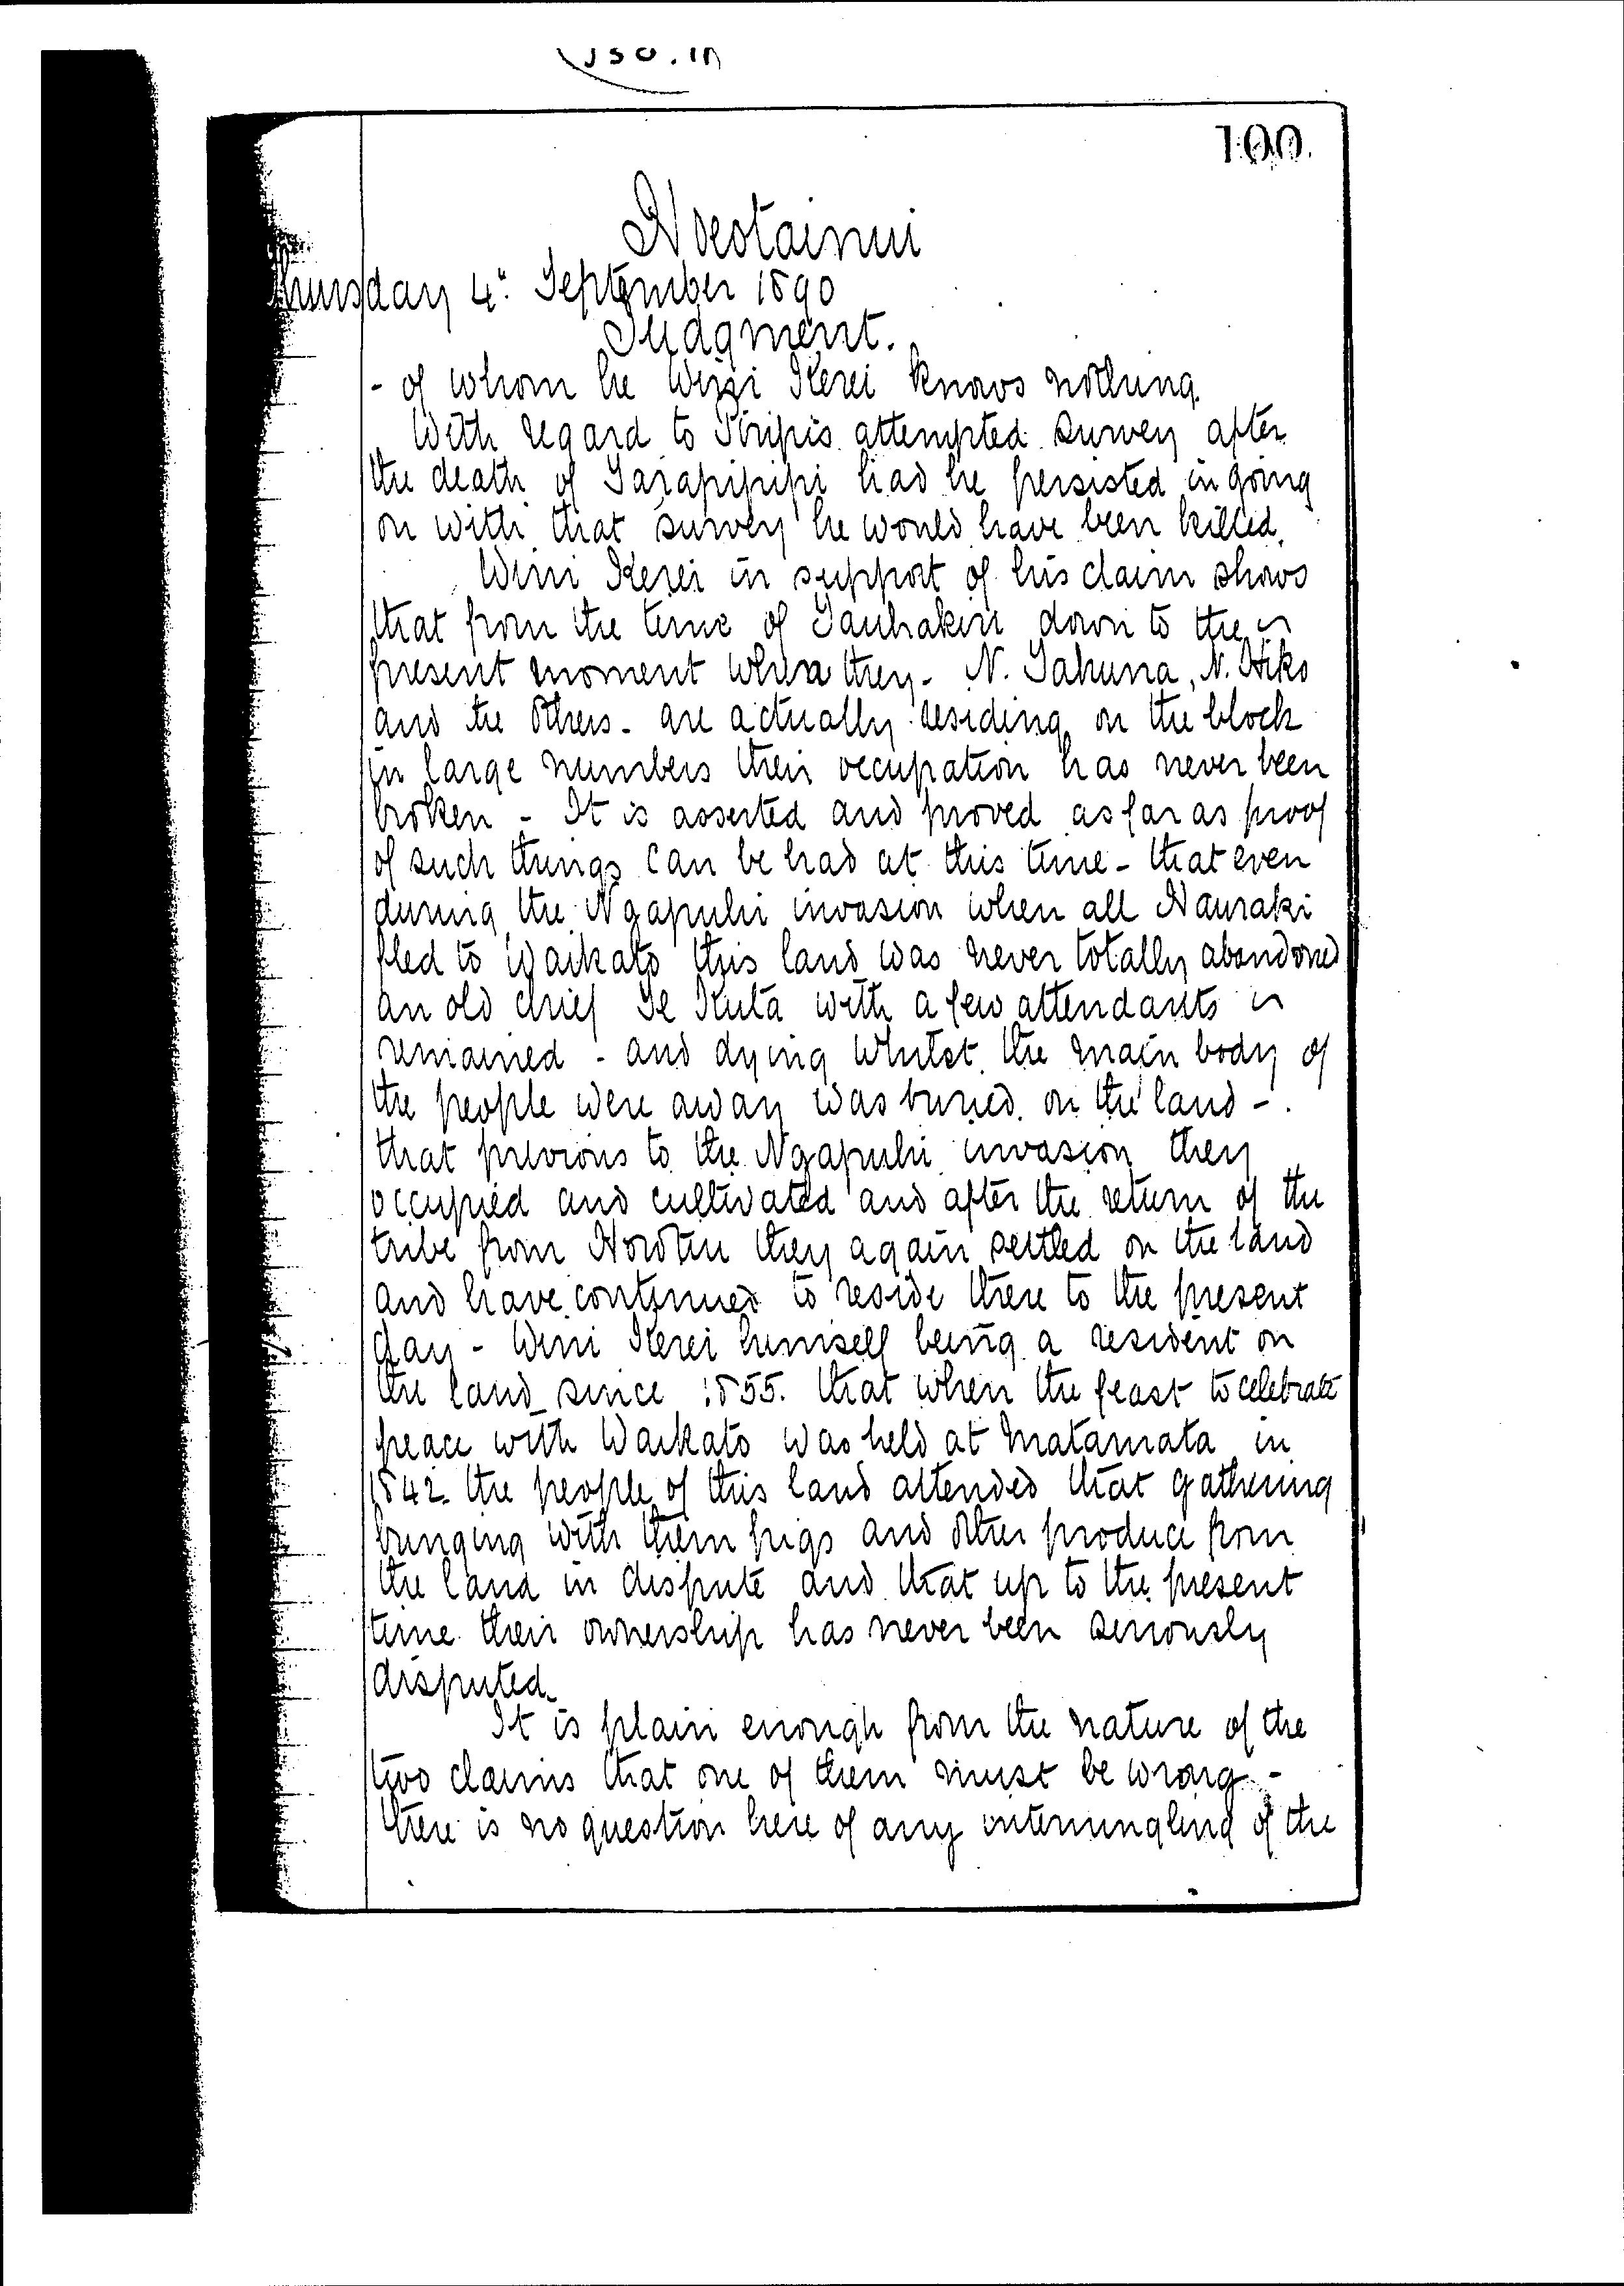 100.
Hoeotainui
Thursday 4" September 1890
Judgment.
- of whom he Wini Kerei knows nothing.
With regard to Piripi's attempted survey after
the death of Tarapipipi had he persisted in going
on with that survey he would have been killed.
Wini Kerei in support of his claim shows
that from the time of Tauhakari down to the
present moment when they - N. Tahuna, N. Hiko
and the others - are actually residing on the block
in large numbers their occupation has never been
broken - It is asserted and proved as far as proof
of such things can be had at this time - that even
during the Ngapuhi invasion when all Hauraki
fled to Waikato this land was never totally abandoned
an old chief Te Ruta with a few attendants
remained - and dying whilst the main body of
the people were away was buried on the land -
that previous to the Ngapuhi invasion they
occupied and cultivated and after the return of the
tribe from Horotiu they again settled on the land
and have continued to reside there to the present
day - Wini Kerei himself being a resident on
the land since 1855. that when the feast to celebrate
peace with Waikato was held at Matamata in
1842. the people of this land attended that gathering
bringing with them pigs and other produce from
the land in dispute and that up to the present
time their ownership has never been seriously
disputed.
It is plain enough from the nature of the
two claims that one of them must be wrong -
there is no question here of any intermingling of the